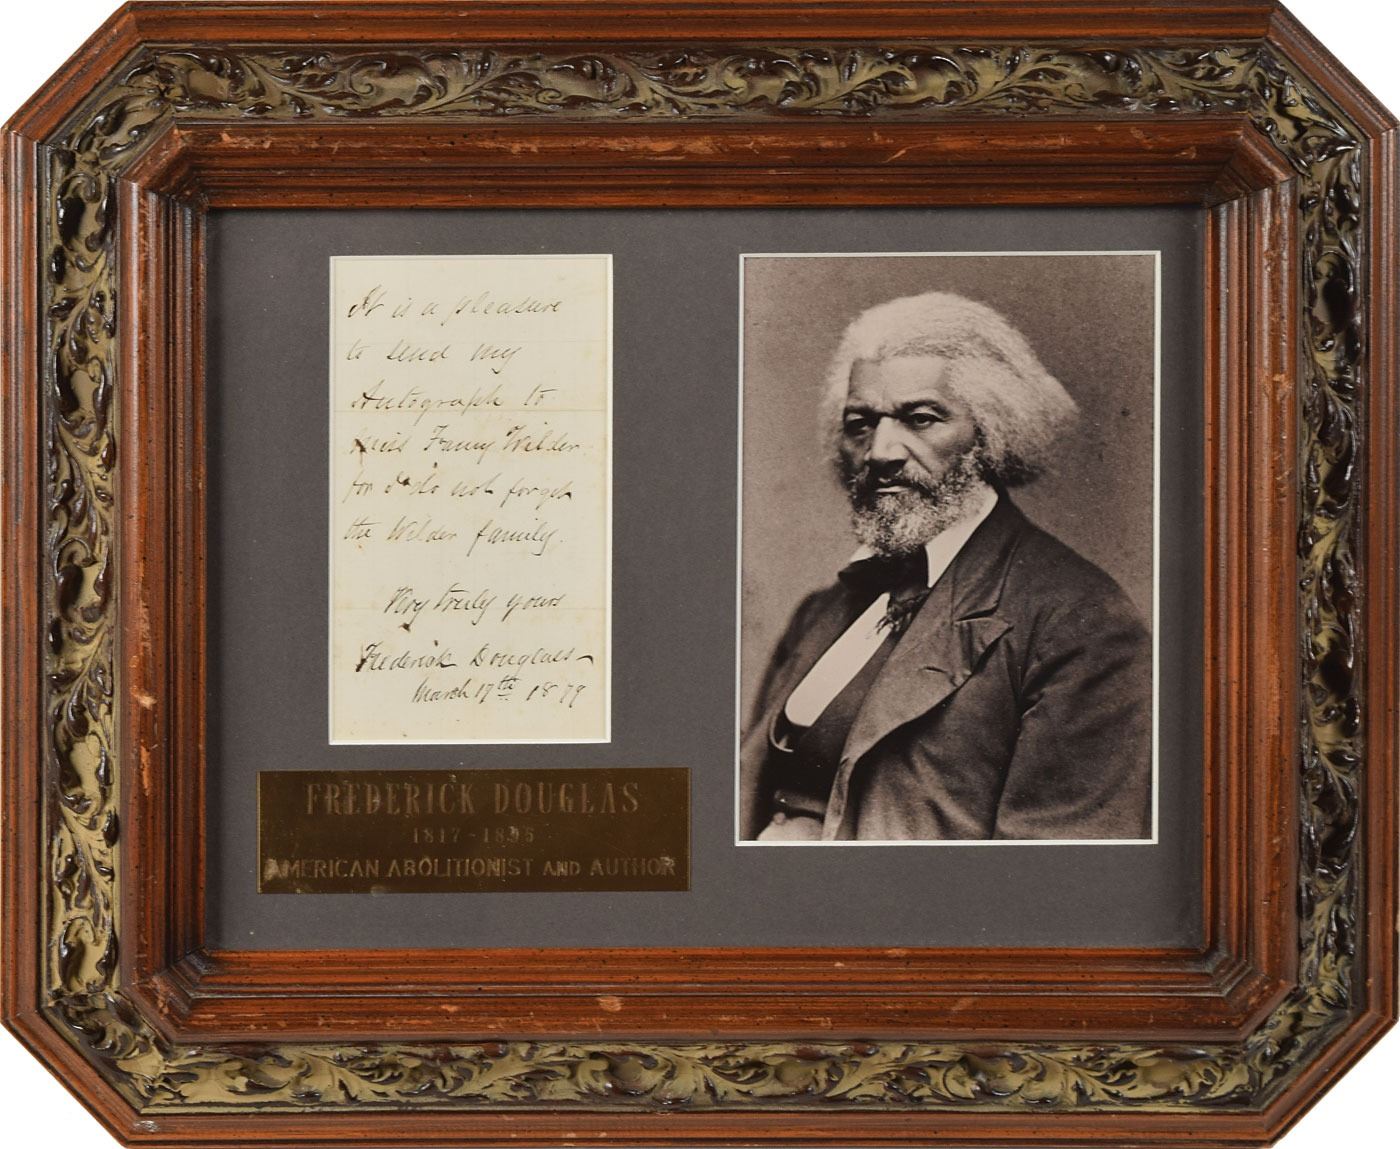 It is a pleasure
to send my
Autograph to
Miss Fanny Wilder
for I do not forget
the Wilder family.
Very truly yours
Frederick Douglass
March 17th 1879
FREDERICK DOUGLAS
1817 - 1895
AMERICAN ABOLITIONIST AND AUTHOR